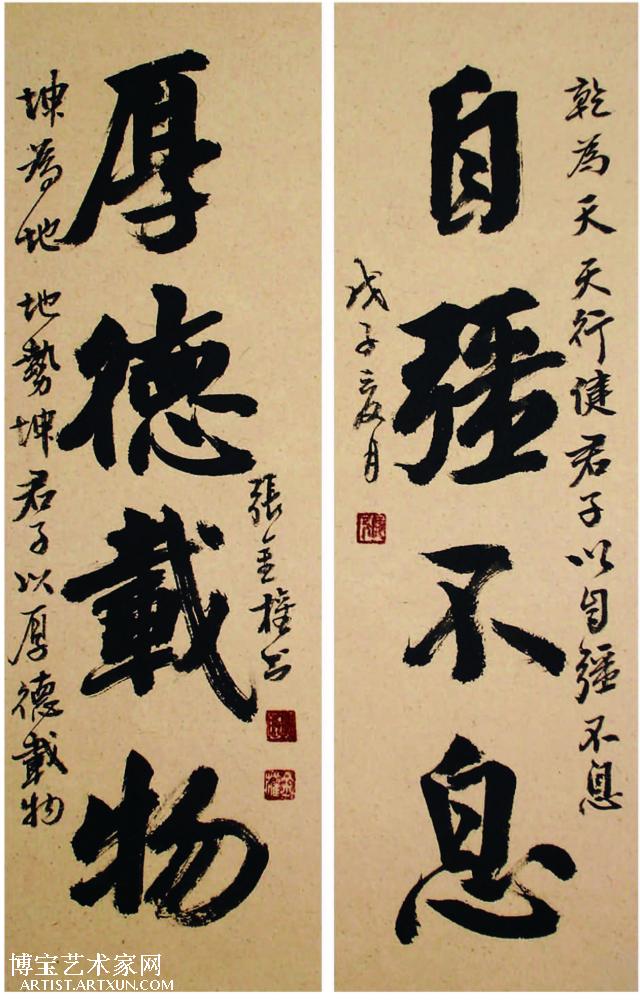 乾為天天行健君子以自彊不息
自彊不息
戊子夏月
張金權书
厚德載物
坤為地地勢坤君子以厚德載物
博宝艺术家网
ARTIST.ARTXUN.COM